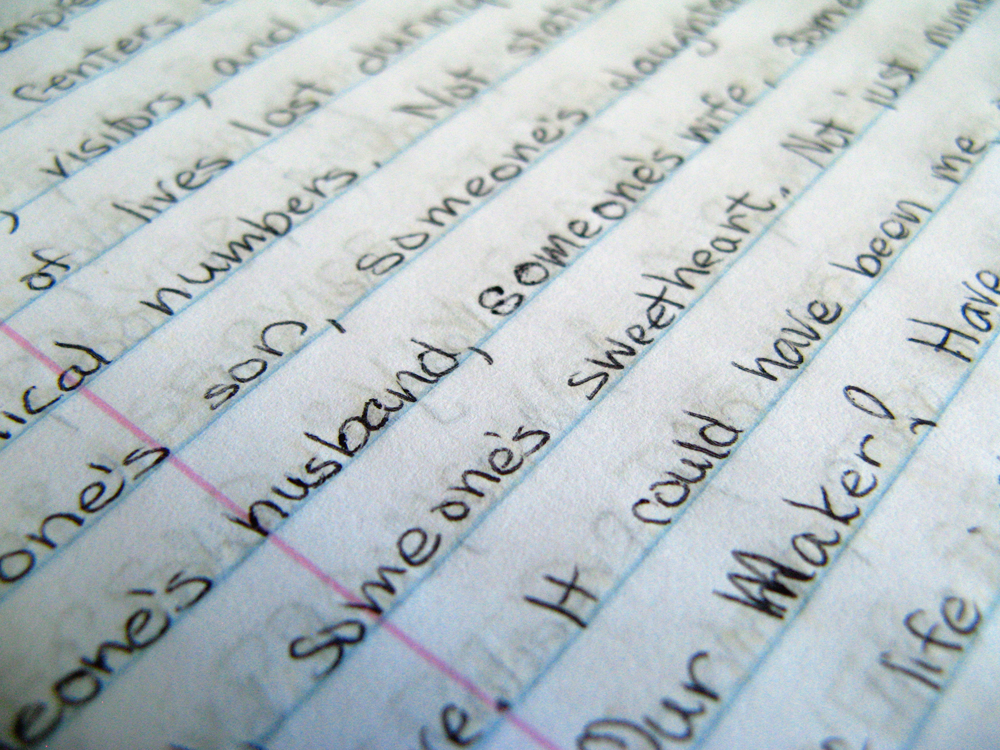 Centers
, visitors, and
of lives lost during
ical numbers. Not statis
one's son, someone's daughte
eone's husband, someone's wife, some
someone's sweetheart.. Not just num
re. It could have been me
Our Maker? Have
life